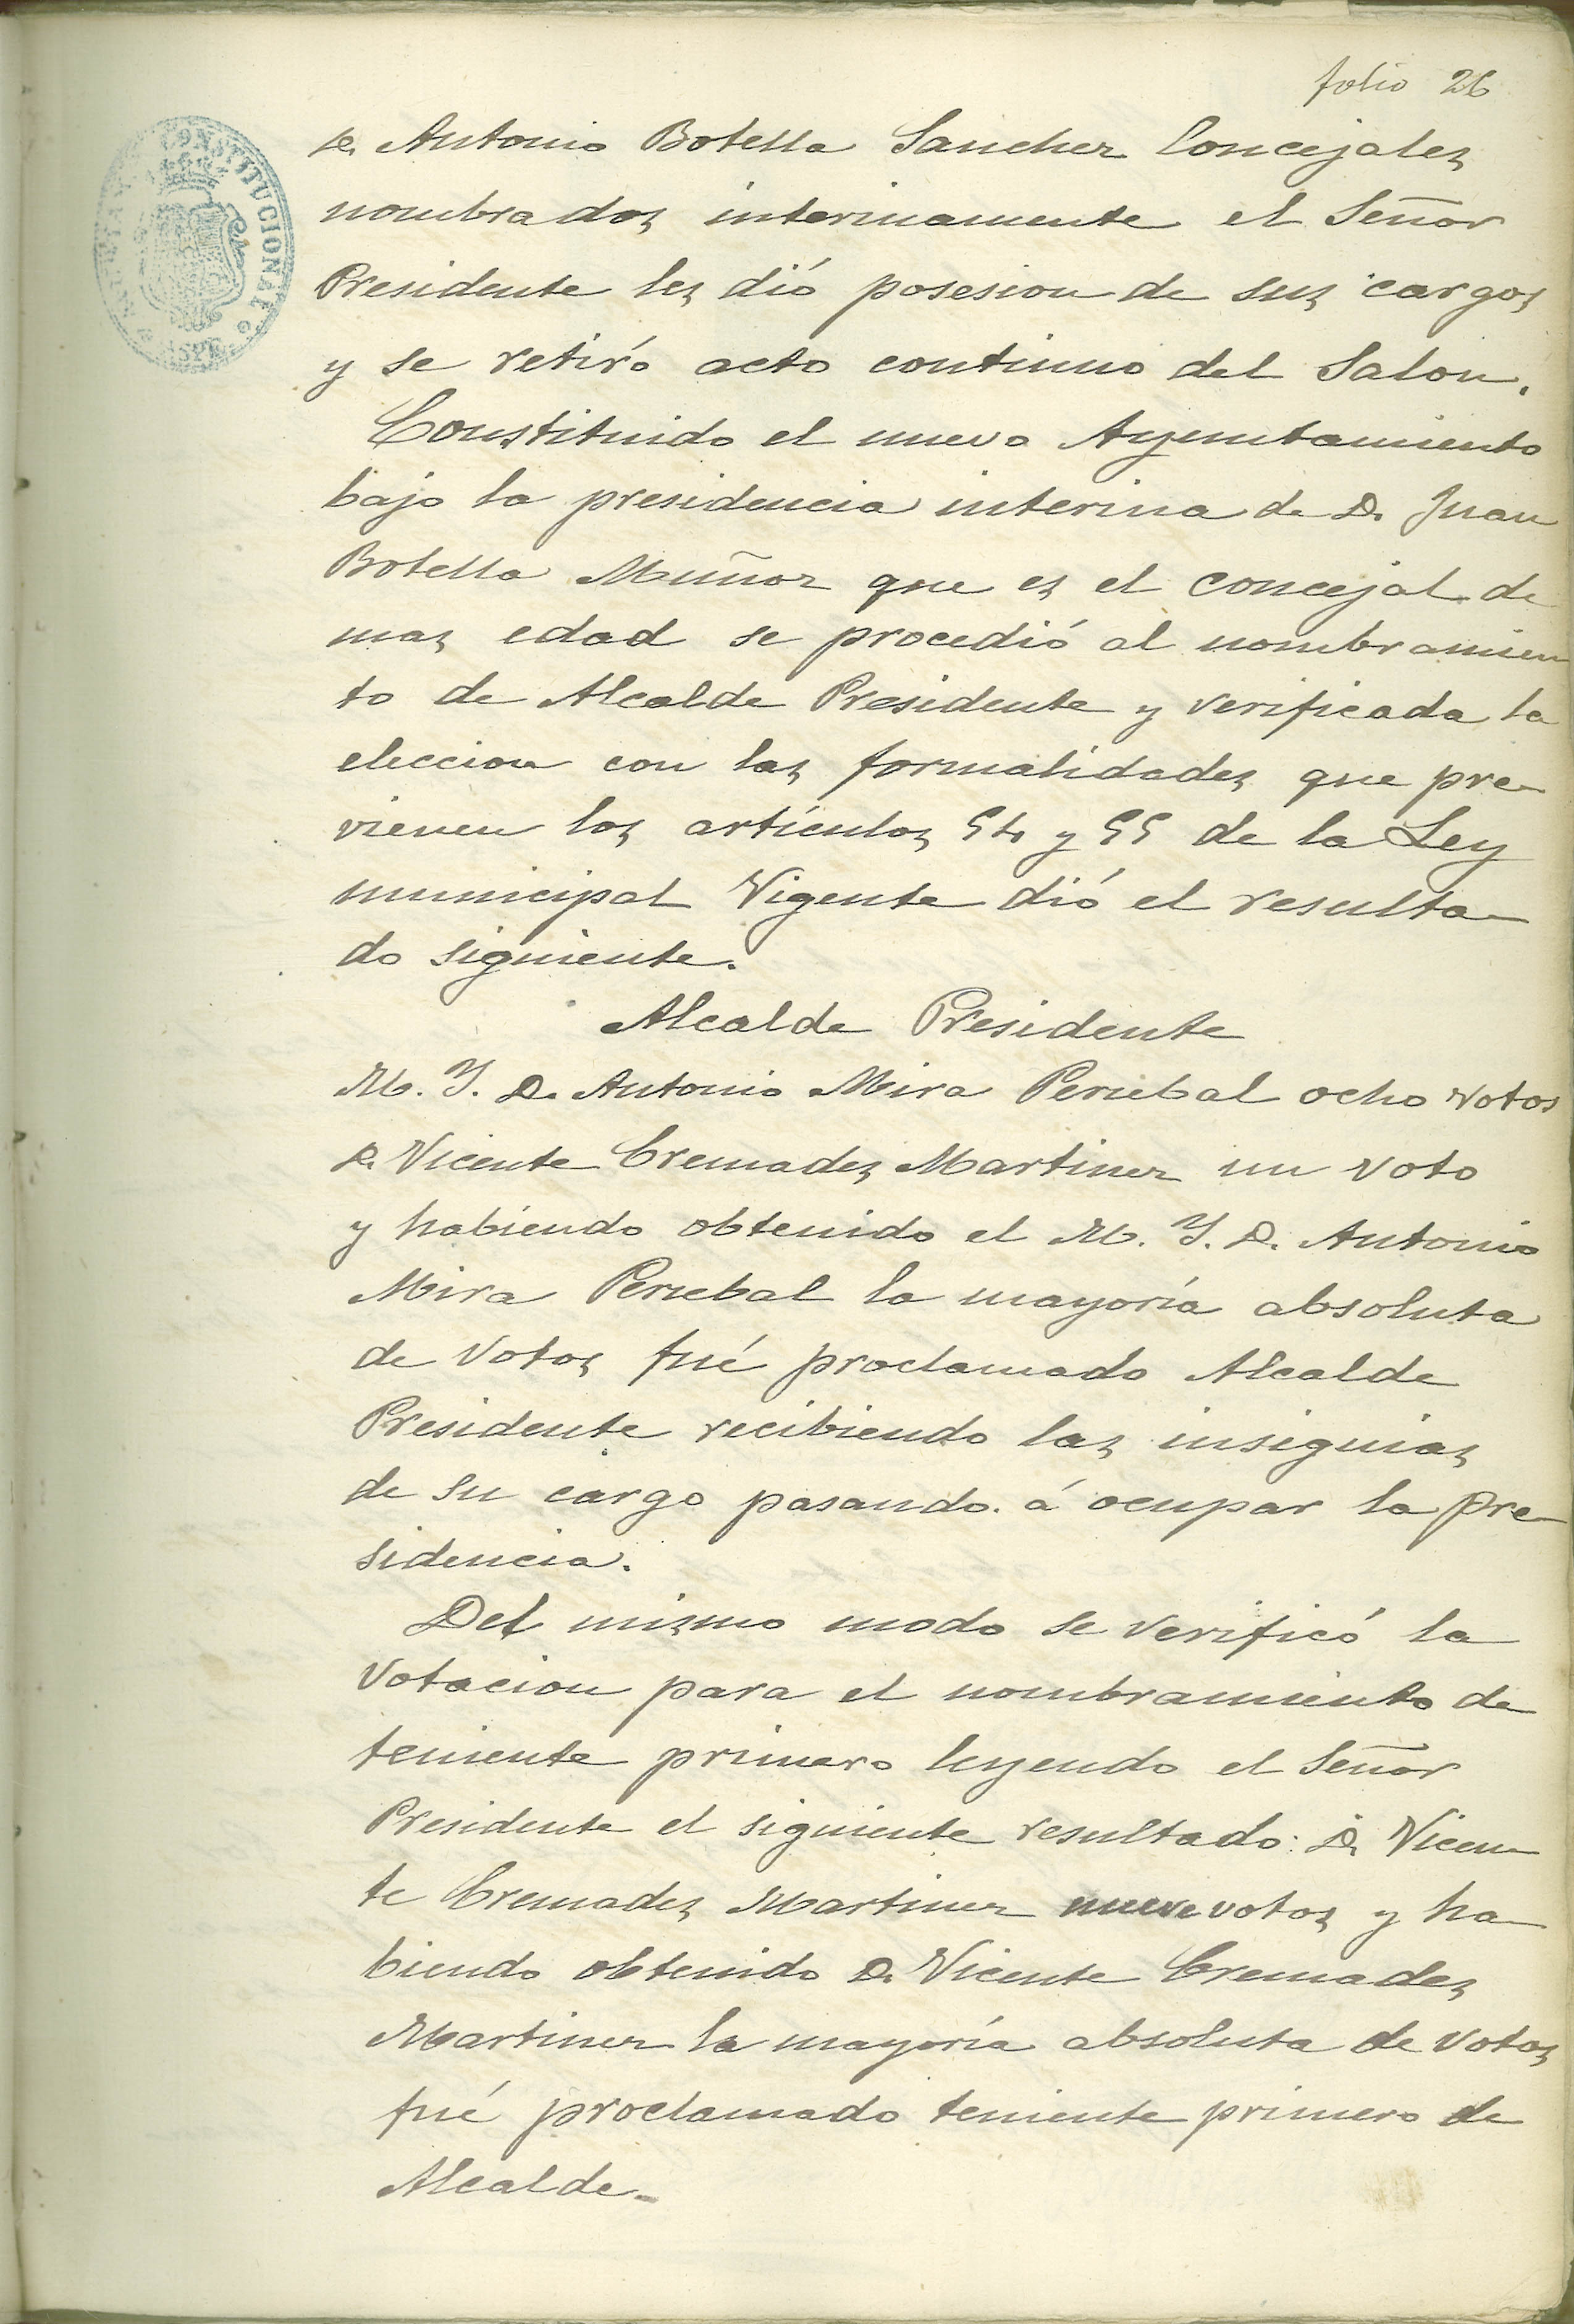 folio 26
D. Antonio Botella Sanchez Concejales
nombrados interinamente el Señor
Presidente les dió posesion de sus cargos
y se retiró acto continuo del Salon.
Constituido el nuevo Ayuntamiento
bajo la presidencia interina de D. Juan
Botella Muñoz que es el concejal de
mas edad se procedió al nombramien
to de Alcalde Presidente y verificada la
eleccion con las formalidades que pre-
vienen los artículos 54 y 55 de la Ley
municipal Vigente dió el resulta-
do siguiente.
Alcalde Presidente
M. Y. D. Antonio Mira Percebal ocho votos
D. Vicente Cremades Martinez un voto
y habiendo obtenido el M. Y. D. Antonio
Mira Percebal la mayoría absoluta
de votos fué proclamado Alcalde
Presidente recibiendo las insignias
de su cargo pasando á ocupar la pre-
sidencia.
Del mismo modo se verificó la
votacion para el nombramiento de
teniente primero leyendo el Señor
Presidente el siguiente resultado: D. Vicen-
te Cremades Martinez nueve votos y ha-
biendo obtenido D. Vicente Cremades
Martinez la mayoría absoluta de votos
fué proclamado teniente primero de
Alcalde-
CONSTITUCIONAL